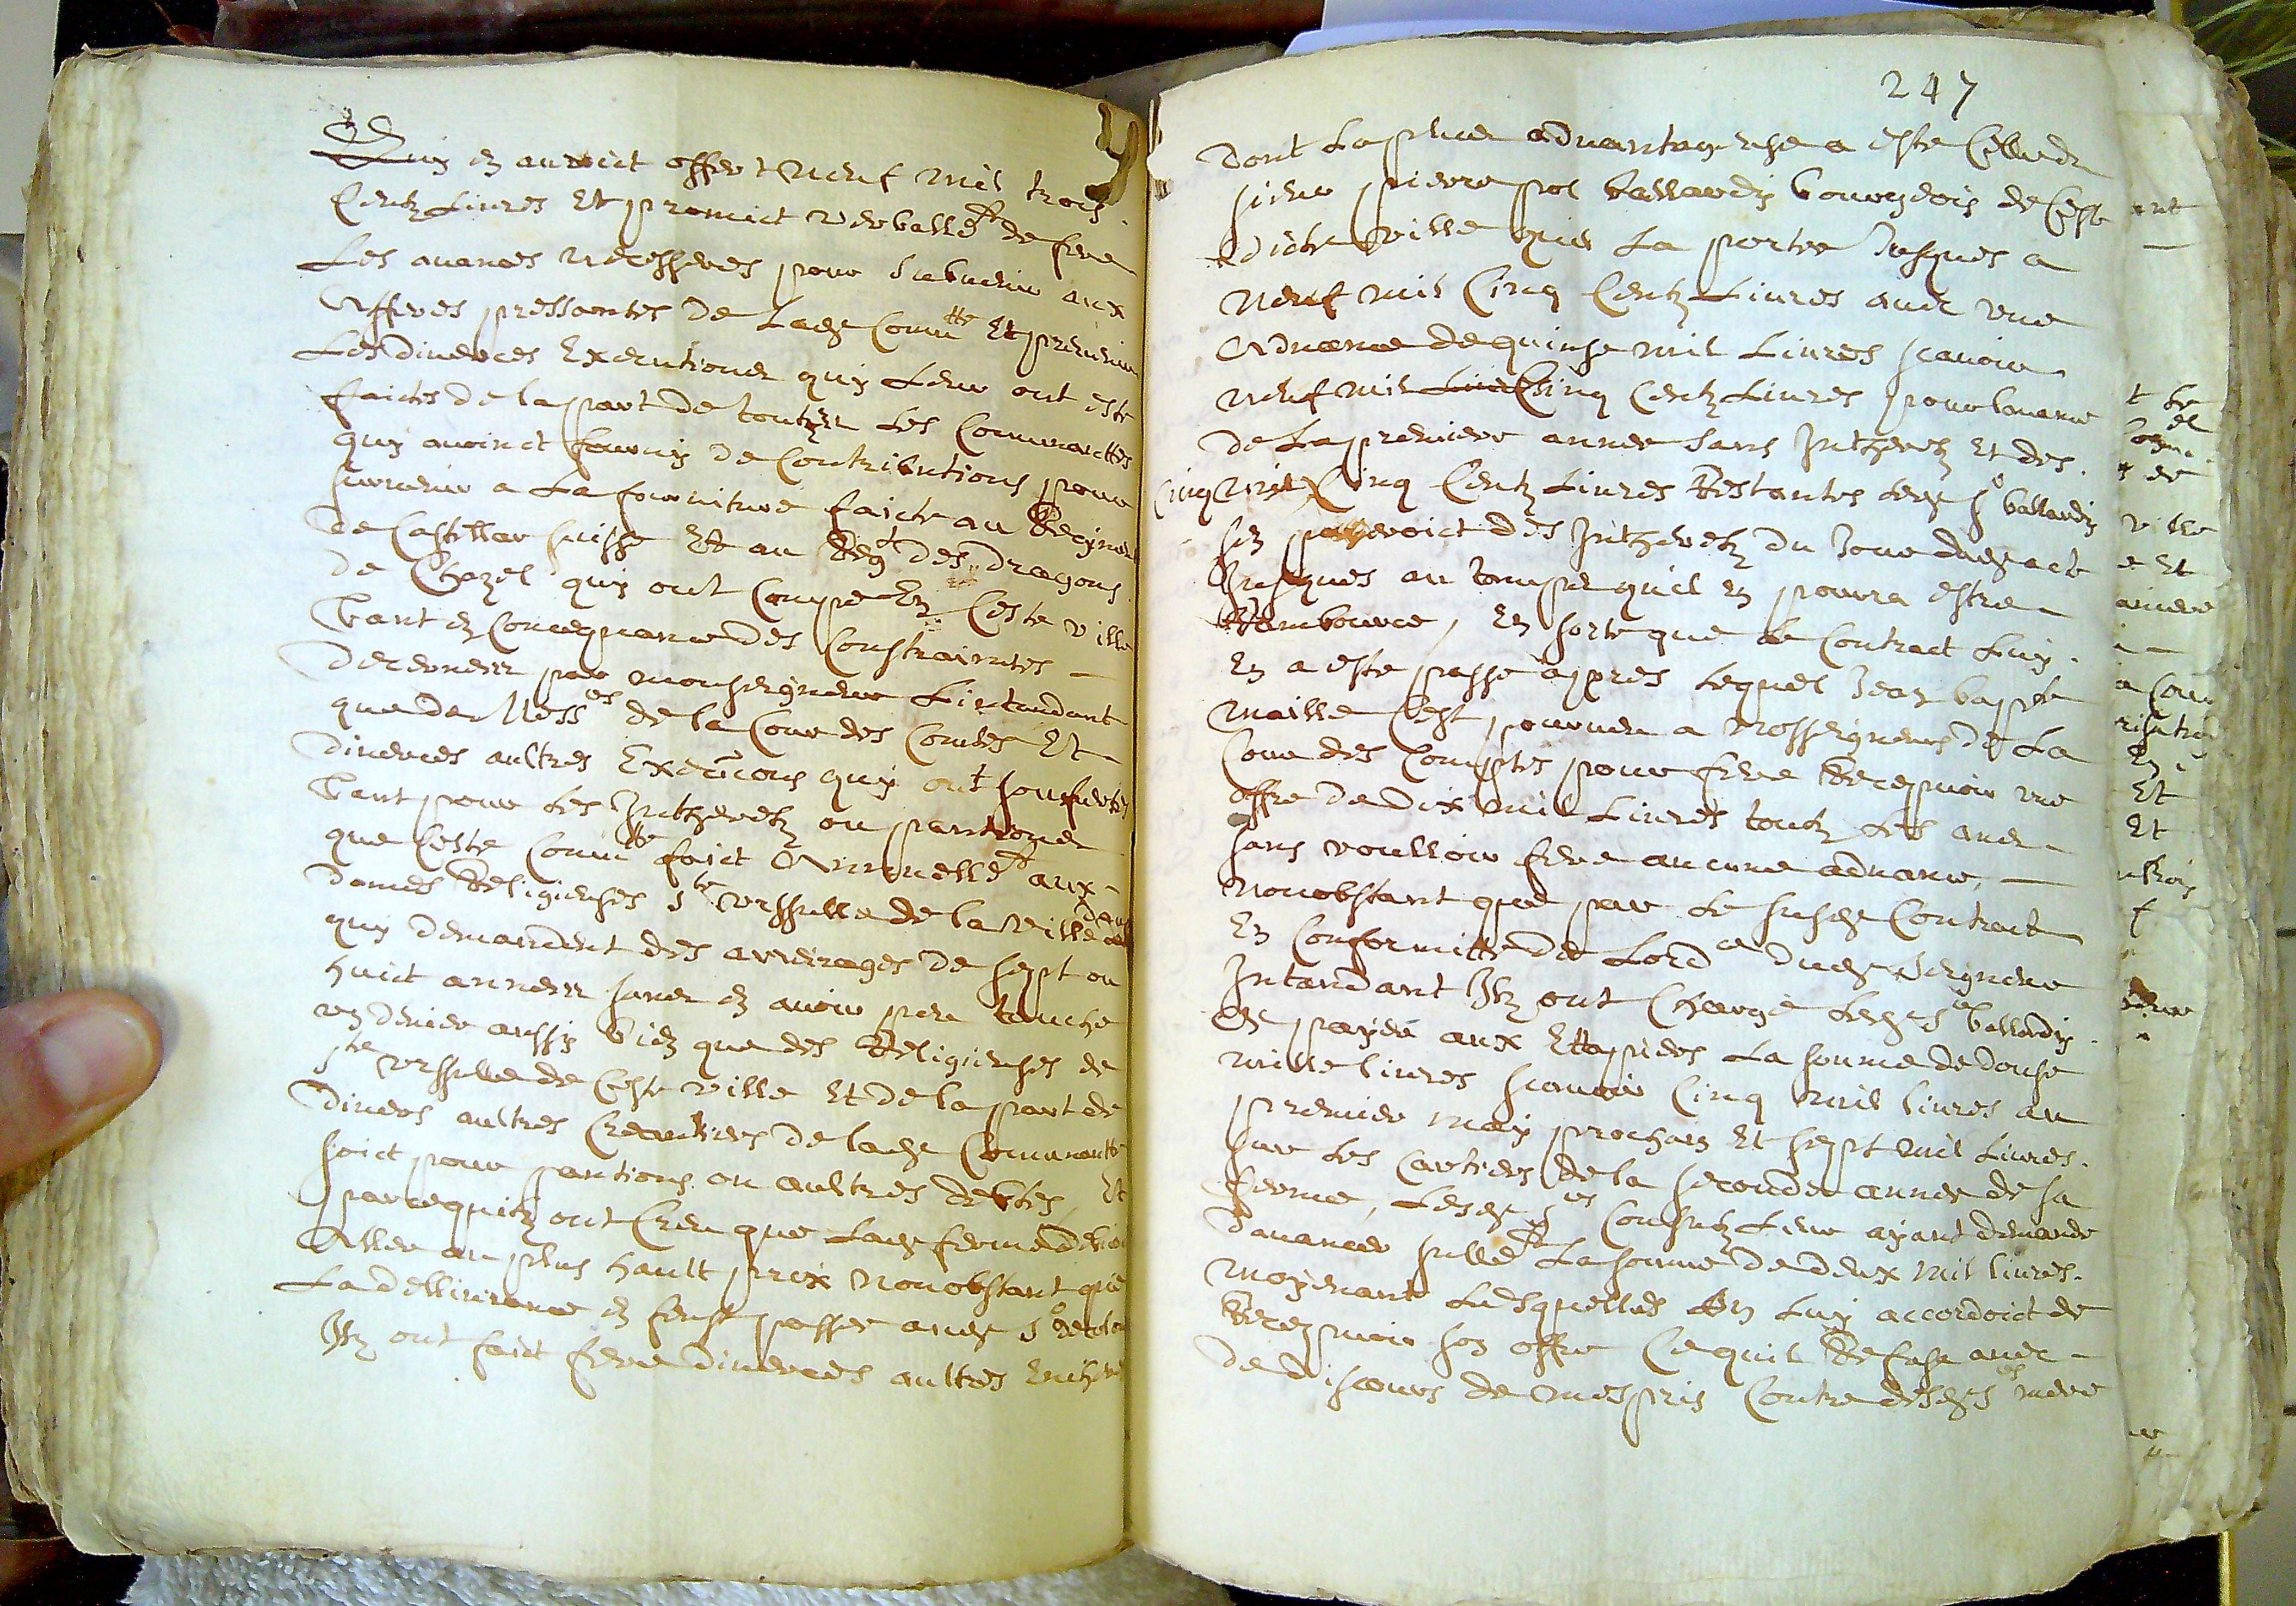 Quy en auroict offert neuf mil trois
Centz Liures Et promict verballemt de fere
Les auances necesseres pour Subuenir aux
Afferes pressantes de Ladte Commtte Et preuenir
Les diuerces Executions quy Leur ont este
faictes de la part de touttes Les Communettes
quy auoinct fourny de Contributions pour
suruenir a La fourniture faicte au Regimen
De Castellar suisse Et au Regt des dragons
de Chazel quy ont Campe En Ceste ville
Tant en Concequance des Constraintes
decernees par monseigneur Lintandant
que de Messrs de la Cour des Comtes Et
diuerces aultres Execuons quy ont souffertes
Tant pour Les Intheretz ou pantions
que Ceste Commtte faict Annuellemt aux
dames Religieuses Ste Vrssulle de la ville
quy demandent des arreirages de sept ou
huict annees sans en auoir peu touche
vn denier aussy bien que des Religieuses de
Ste Vrssulle de Ceste ville Et de la part de
Diuers aultres Creantiers de ladte Communautte
soict pour pantions ou aultres debtes, Et
parcequilz ont Creu que Ladte ferme debuoi
Aller au plus hault prix nonobstant que
La dellivrance en feust passee audt Sr
Ilz ont faict fere diuerces aultres Enche
247
Dont La plus aduantageuse a este Celle de
sieur pierre pol ballardy bourgeois de Ceste
dicte ville quil La portee Jusques a
neuf mil Cinq Centz Liures auec vne
Aduance de quinse mil Liures scauoir
neuf mil Cinq Centz Liures pour lauance
de La premiere annee sans Intheretz Et des
Cinq mil Cinq Centz Liures Restantes ledt Sr ballardy
sen payeroict des Intheretz du Jour dudt act
Jusques au temps quil en pourra estre
Rambource, En sorte que le Contract Luy
En a este passe appres lequel Jean baptte
maille Cest pourueu a nosseigneurs de La
Cour des Comptes pour fere Recepuoir vne
offre de dix mil Liures toutz Les ans
sans voulloir fere aucune aduance,
nonobstant que par Le susdt Contract
En Conformitte de Lordce dudt seigneur
Intandant Ilz ont Charge ledt Sr ballardy
de payer aux Ettapiers La somme de douse
mille liures scauoir Cinq mil liures au
premier may prochain Et sept mil Liures
sur Les Cartiers de la seconde annee de sa
ferme, Lesdts Srs Consulz Leur ayant demande
dauancer sullemt La somme de deux mil liures
moyenant Lesquelles On Luy accordoict de
Recepuoir son offre Ce quil Refuse auec
de discours de mespris Contre desdts Srs mere